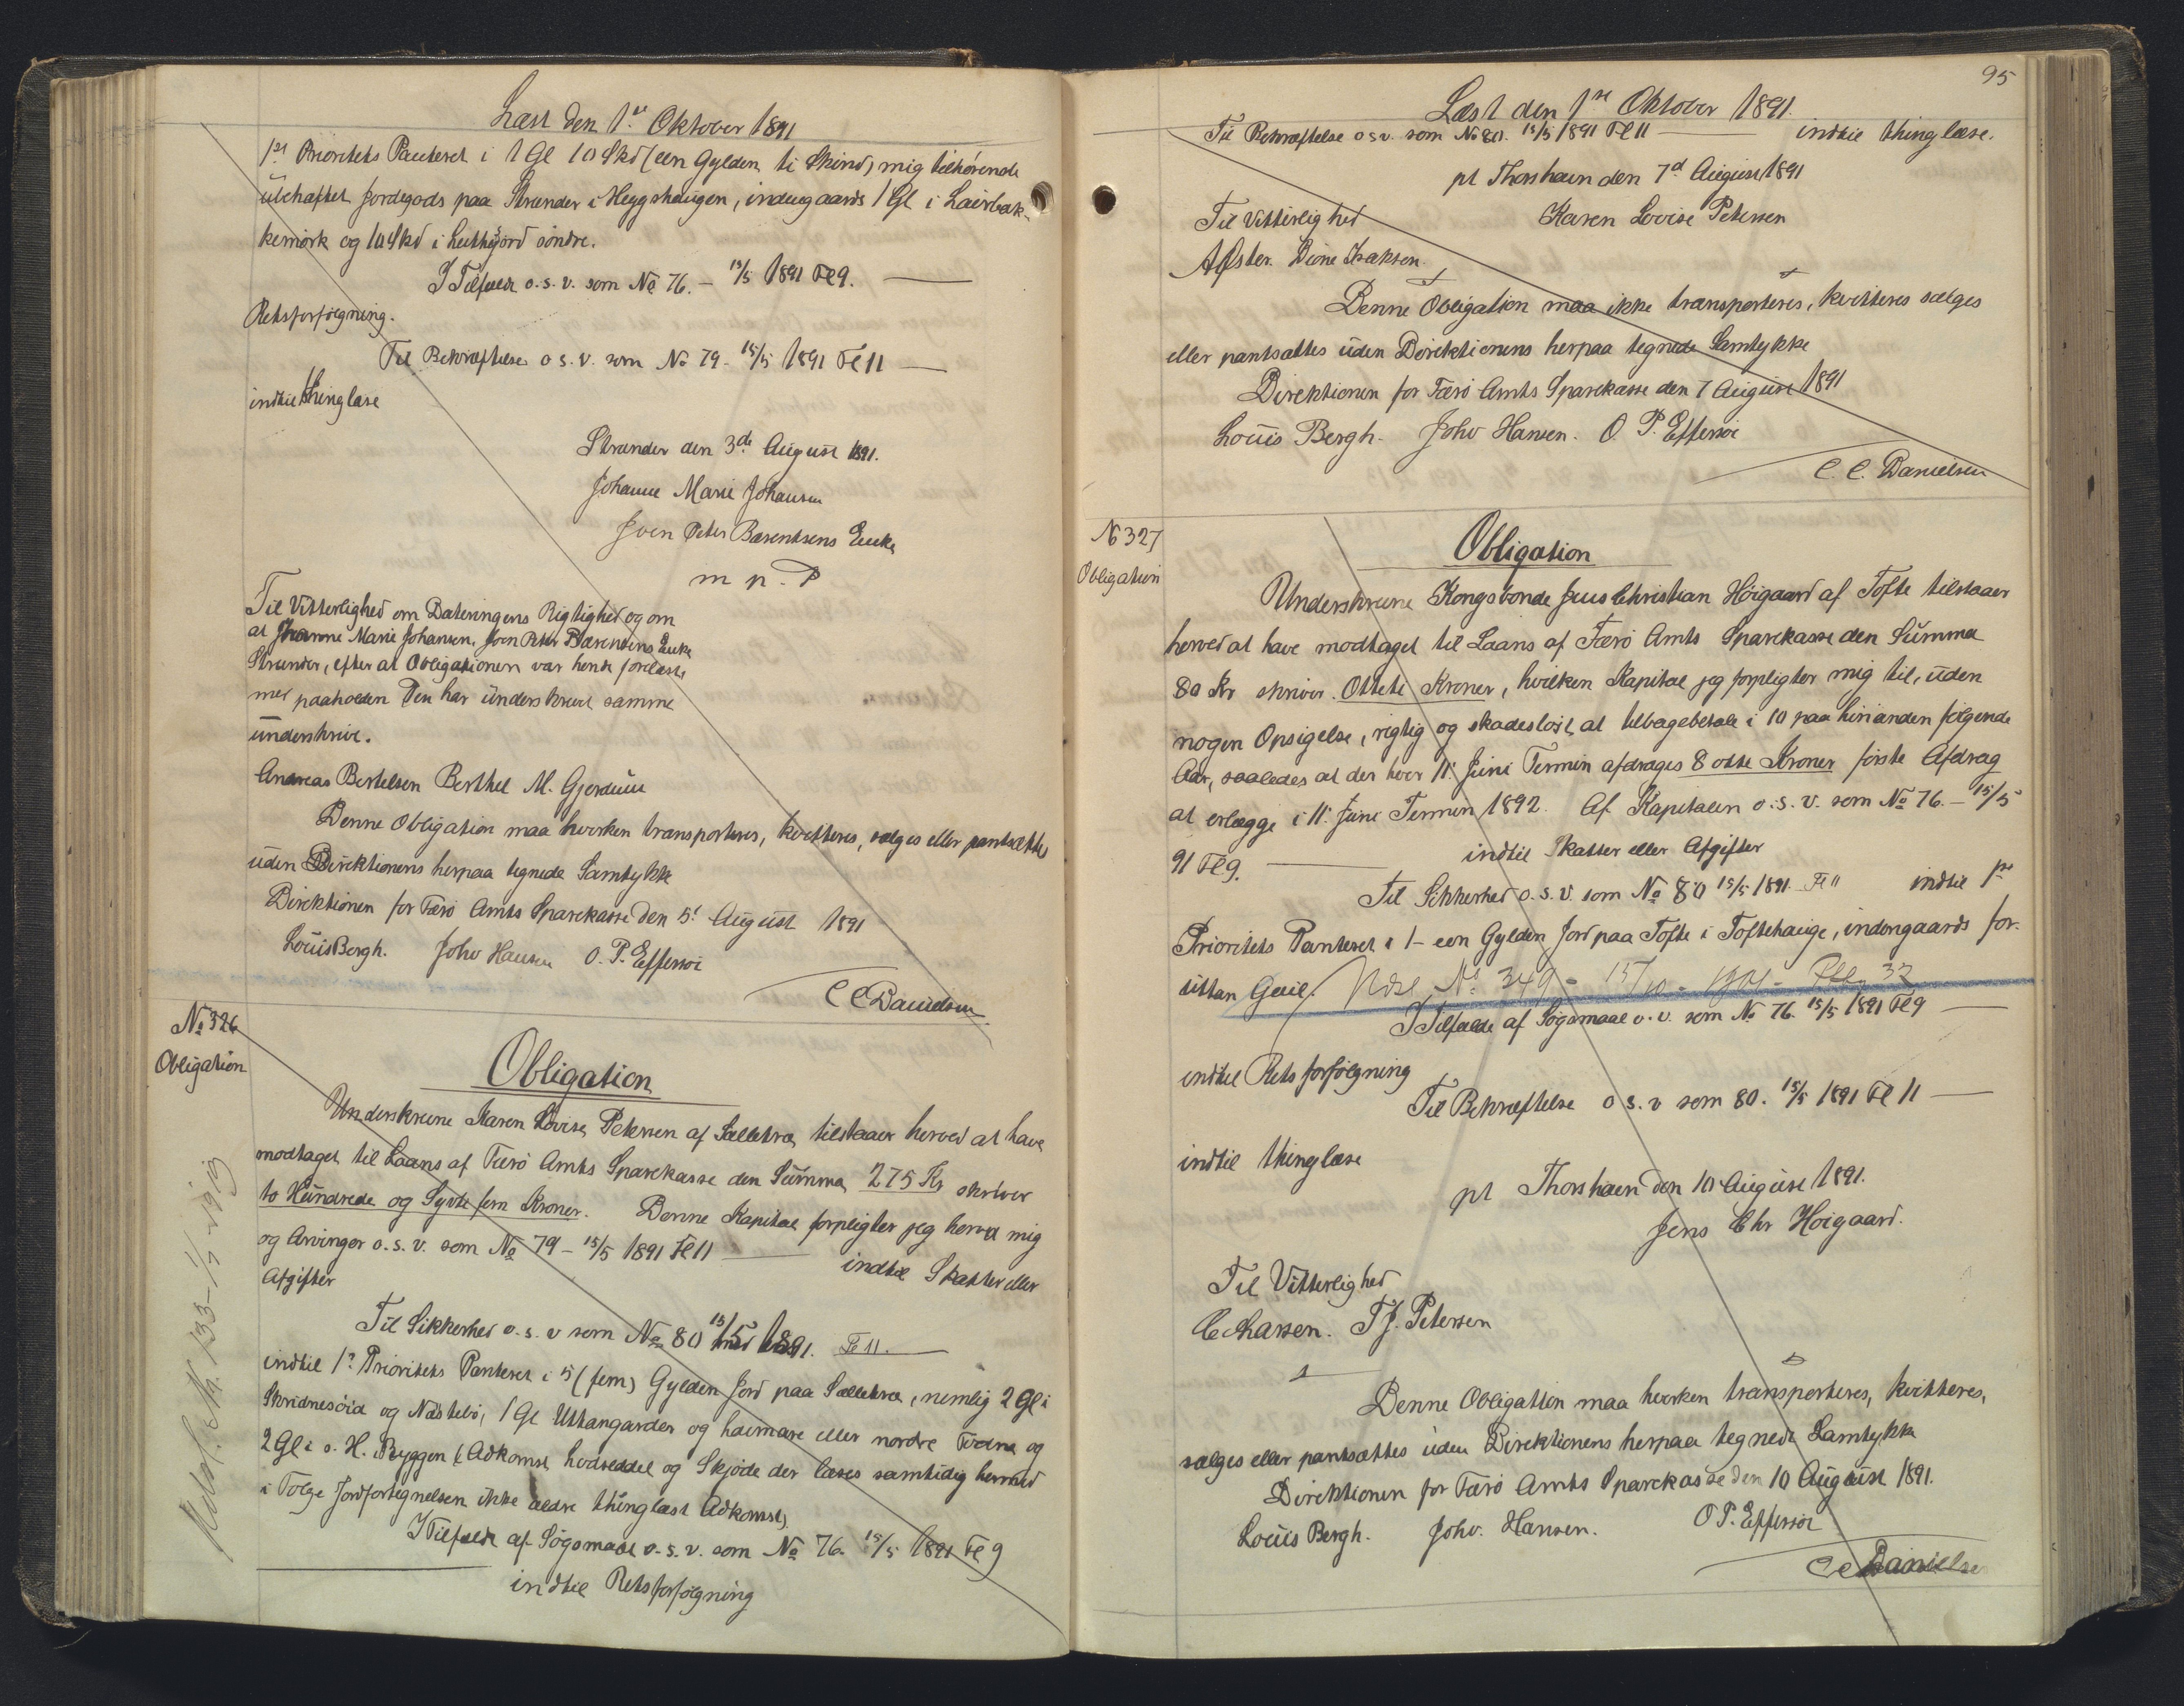 Læst den 1ste Oktober 1891
1ste Prioritets Panteret i 1 Gl 10 Skd (een Gylden ti Skind) mig tilhørende
udskiftet Jordegods paa Strænder i Heygshaugen, indengaards 1 Gl i Lairbak-
kemørk og 10 Skd i Luthsjórd søndre.
I Tilfælde o.s.v. som No 76. - 15/5 1891 Fl 9.
Retsforfølgning.
Til Bekræftelse o s. v. som No 79- 15/5 1891 Fl 11
indtil thinglæse
Strænder den 3de August 1891.
Johanne Marie Johansen
Joen Peter Barentsens Enke
m. p. P
Til Vitterlighed om Dateringens Rigtighed og om
at Johanne Marie Johansen, Joen Peter Barentsens Enke
Strænder, efter at Obligationen var hende forelæst,
med paaholden Pen har underskrevet samme
underskrive.
Andreas Bertelsen Berthel M. Gjerdum
Denne Obligation maa hverken transporteres, kvitteres, sælges eller pantsættes
uden Direktionens herpaa tegnede Samtykke
Direktionen for Færø Amts Sparekasse den 5t August 1891
Louis Bergh. Johv Hansen O. P. Effersøe
C C Danielsen
No 326
Obligation
Obligation
Underskrevne Karen Lovise Petersen af Sælletræ tilstaaer herved at have
modtaget til Laans af Færø Amts Sparekasse den Summa 275 Kr skriver
to Hundrede og Syvti fem Kroner. Denne Kapital forpligter jeg herved mig
og Arvinger o. s. v. som No 79 - 15/5 1891 Fl 11 indtil Skatter eller
Afgifter
Til Sikkerhed o. s. v som No 80 15/5 1891. Fl 11.
indtil 1ste Prioritets Panteret i 5 (fem) Gylden Jord paa Sælletræ, nemlig 2 Gl i
Skridnesóid og Nástebö, 1 Gl Uttangarder og haimare eller nordre Todna og
2 Gl i o. H. i Byggen (Adkomst hvdseddel og Skjøde der læses samtidig hermed
i Følge Jordfortegnelsen ikke ældre thinglæst Adkomst)
I Tilfælde af Søgsmaal o. s. v. som No 76. 15/5 1891 Fl 9
indtil Retsforfølgning
95
Læst den 1ste Oktober 1891.
Til Bekræftelse o s v. som No 80. 15/5 1891 Fl 11 indtil thinglæse.
pt Thorshavn den 7d August 1891
Karen Lovise Petersen
Til Vitterlighed
Díone Isaksen.
Denne Obligation maa ikke transporteres, kvitteres sælges
eller pantsættes uden Direktionens herpaa tegnede Samtykke
Direktionen for Færø Amts Sparekasse den 7 August 1891
Louis Bergh. Johv Hansen. O P. Effersøe
C. C. Danielsen
No 327
Obligation
Obligation
Underskrevne Kongsbonde Jens Christian Höigaard af Tofte tilstaaer
herved at have modtaget til Laans af Færø Amts Sparekasse den Summa
80 Kr skriver. Otteti Kroner, hvilken Kapital jeg forpligter mig til, uden
nogen Opsigelse, rigtig og skadesløst at tilbagebetale i 10 paa hinanden følgende
Aar, saaledes at der hver 11' Juni Termin afdrages 8 otte Kroner første Afdrag
at erlægge i 11' Juni Termin 1892. Af Kapitalen o. s. v. som No 76. - 15/5
91 Fl 9. indtil Skatter eller Afgifter
Til Sikkerhed o. s. v. som No 80 15/5 1891 Fl 11 indtil 1ste
Prioritets Panteret i 1 - een Gylden Jord paa Tofte i Toftehauge, indengaards for-
uttan Geil. Udsl. No 349 - 15/10 - 1901 - Fol. 32
I Tilfælde af Søgsmaal o. v. som No 76. 15/5 1891 Fl 9
indtil Rets forfølgning
Til Bekræftelse o s. v som 80. 15/5 1891 Fl 11
indtil thinglæse
pt Thorshavn den 10 August 1891.
Jens Chr Höigaard.
Til Vitterlighed
T. J. Petersen
Denne Obligation maa hverken transporteres, kvitteres,
sælges eller pantsættes uden Direktionens herpaa tegnede Samtykke
Direktionen for Færø Amts Sparekasse den 10 August 1891.
Louis Bergh. Johv. Hansen. O P. Effersøe
C C Danielsen